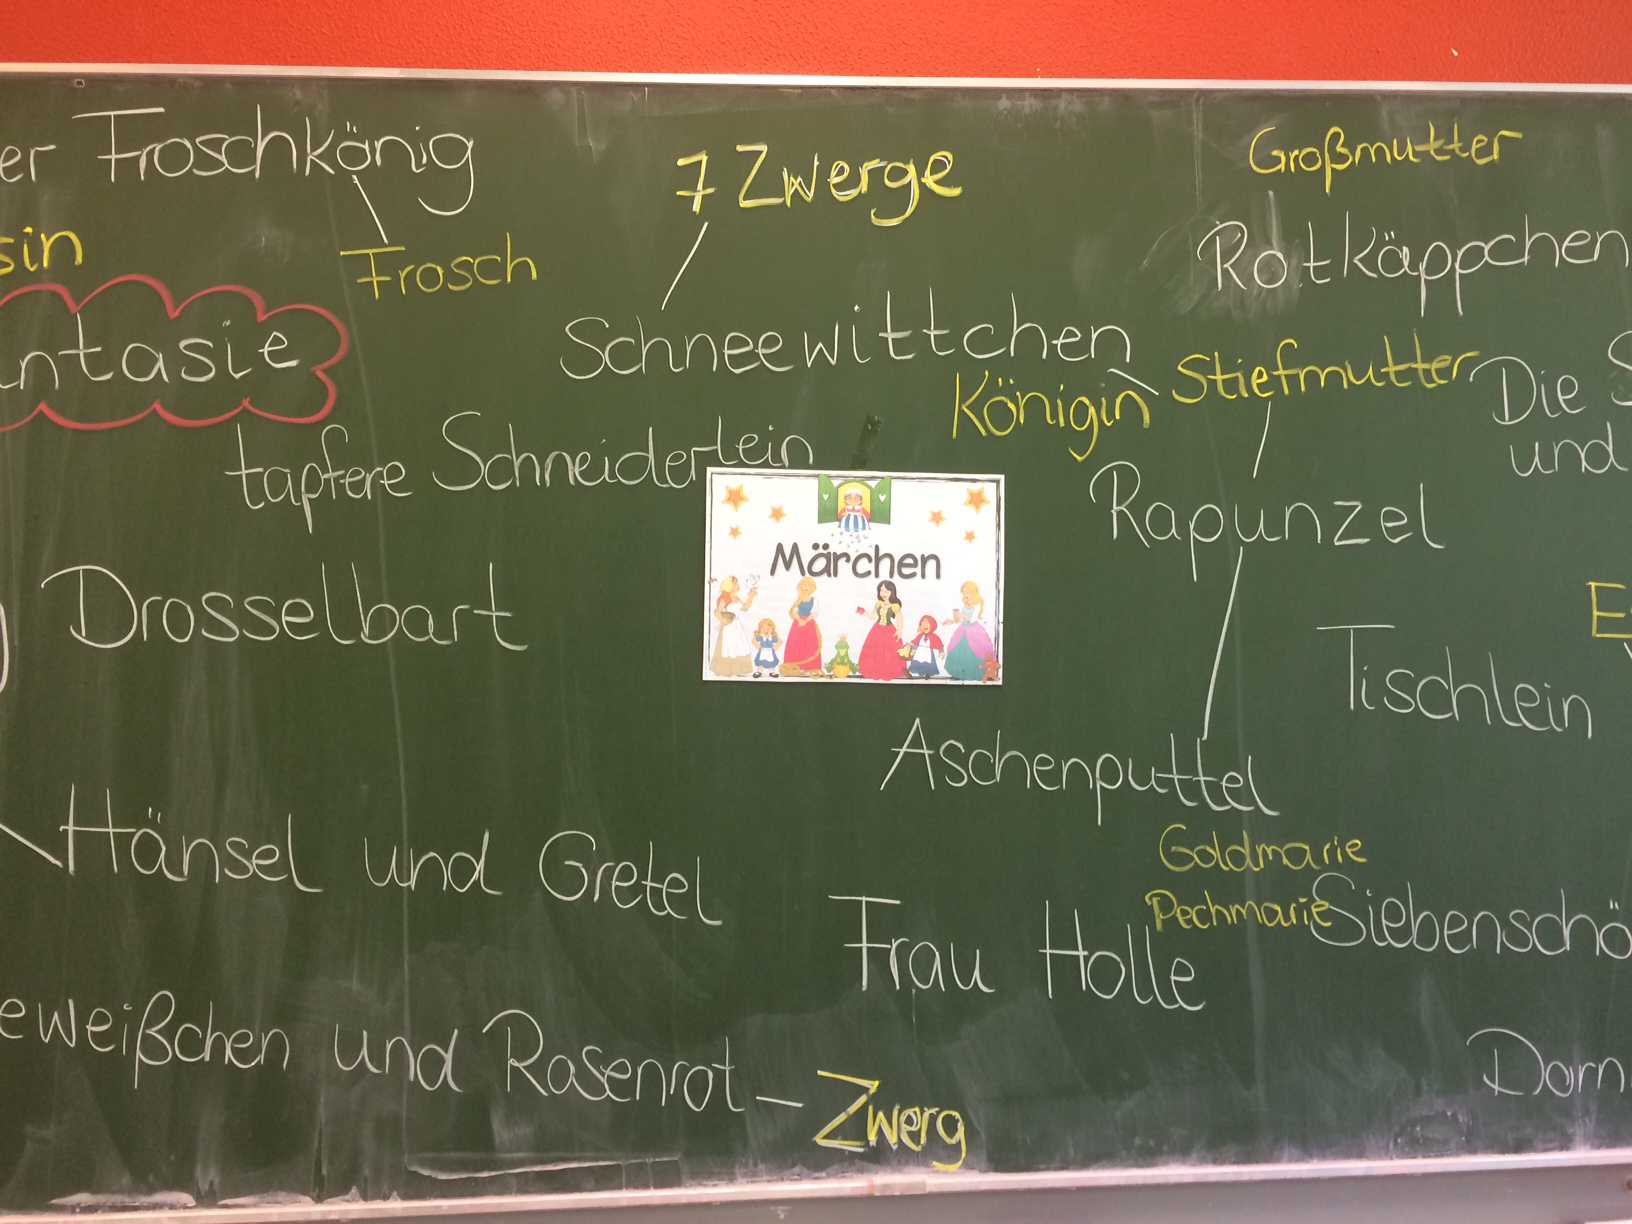 er Froschkönig
7 Zwerge
Großmutter
sin
Frosch
Rotkäppchen
ntasie
Schneewittchen
Königin
Stiefmutter
Die S
und
tapfere Schneiderlein
Rapunzel
Märchen
Drosselbart
Tischlein
Aschenputtel
Hänsel und Gretel
Goldmarie
Pechmarie
Siebenschö
Frau Holle
eweißchen und Rosenrot – Zwerg
Dorn